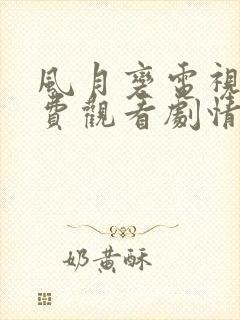 風月變電視
費觀看劇情
奶黃酥